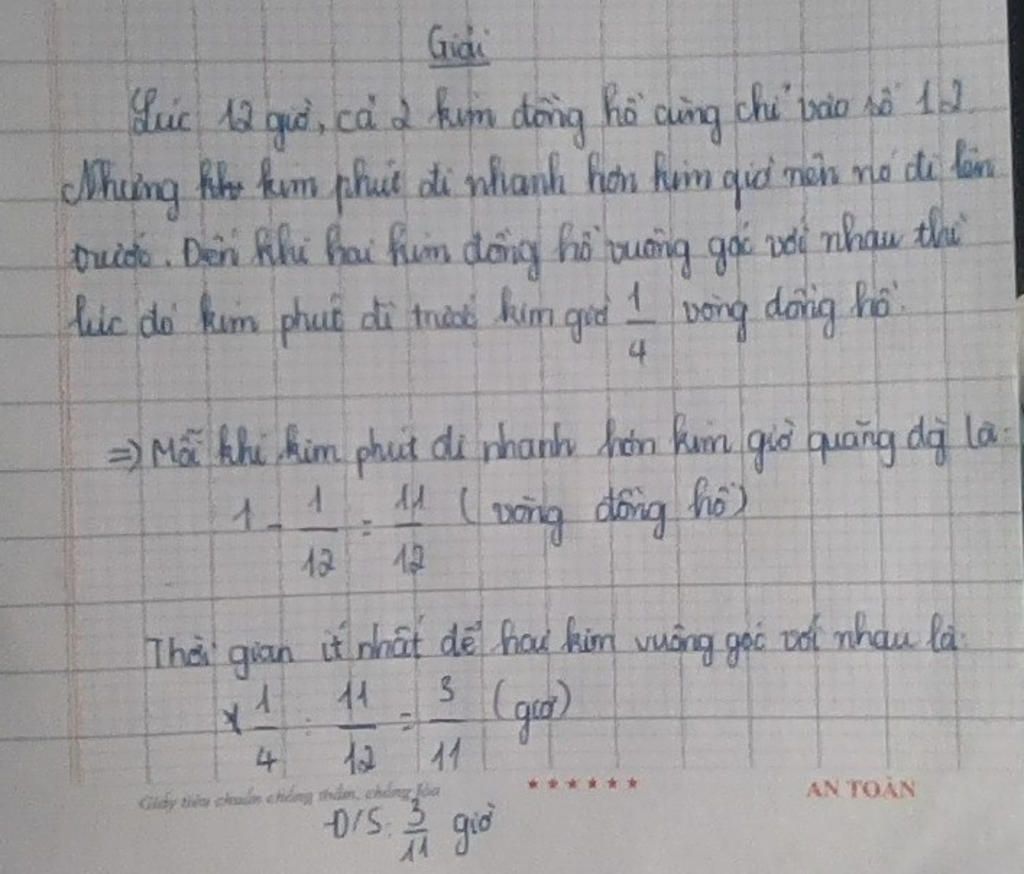 Giải
Lúc 12 giờ, cả 2 kim đồng hồ cùng chỉ vào số 12.
Nhưng kim phút đi nhanh hơn kim giờ nên nó đi lên
trước. Đến khi hai kim đồng hồ vuông góc với nhau thì
lúc đó kim phút đi trước kim giờ 1/4 vòng đồng hồ.
=> Mỗi khi kim phút đi nhanh hơn kim giờ quãng đg là:
1 - 1/12 = 11/12 (vòng đồng hồ)
Thời gian ít nhất để hai kim vuông góc với nhau là:
1/4 : 11/12 = 3/11 (giờ)
Giấy tiêu chuẩn chống thấm, chống lóa
****** AN TOÀN
Đ/S: 3/11 giờ